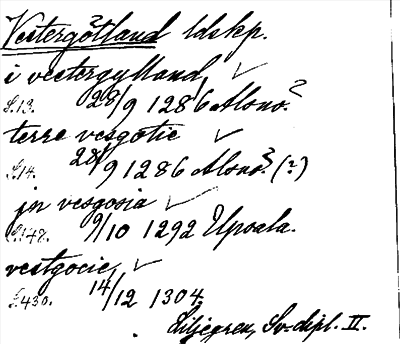 Vestergötland ldskp.
i vestergylland, ✓
S.13. 28/9 1286 Alsnö?
terre vesgotie ✓
S.14. 28/9 1286 Alsnö? (?)
jn vesgosia ✓
S.148. 9/10 1292 Upsala.
vestgocie, ✓
S.430. 14/12 1304,
Liljegren, Sv. dipl. II.